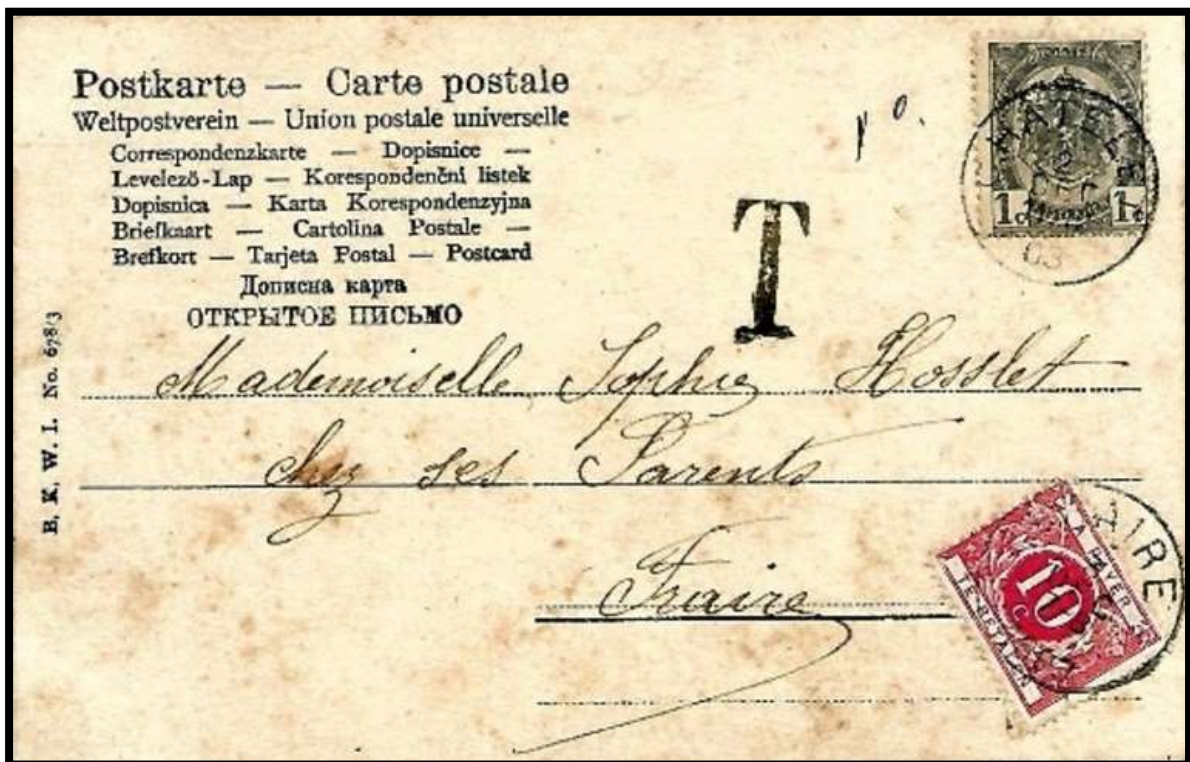 Postkarte — Carte postale
Weltpostverein — Union postale universelle
Correspondenzkarte — Dopisnice —
Levelező-Lap — Korespondenční listek
Dopisnica — Karta Korespondenzyjna
Briefkaart — Cartolina Postale —
Brefkort — Tarjeta Postal — Postcard
Дописна карта
ОТКРЫТОЕ ПИСЬМО
T
1c 1c
03
B. K. W. I. No. 678/3
Mademoiselle Sophie Hosslet
chez ses Parents
Fraire
A PAYER
10
C
TE BETALEN
AIRE